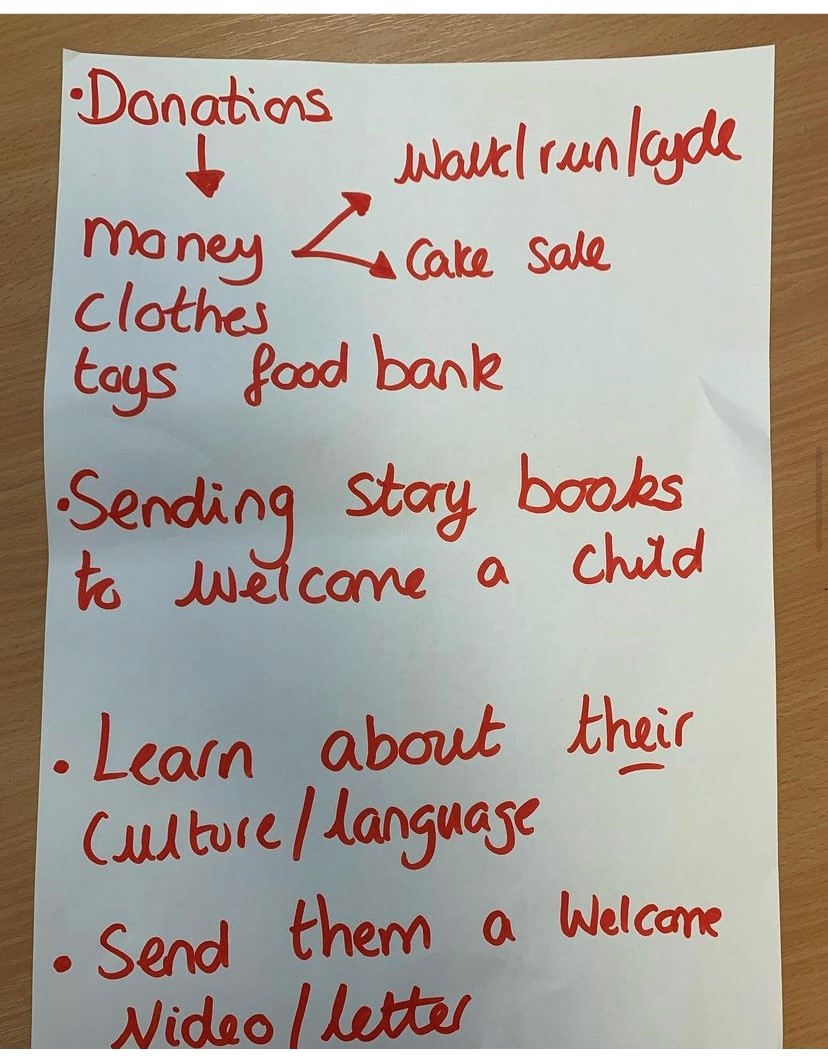 ·Donations
walk/run/cycle
money
cake sale
clothes
toys food bank
·Sending story books
to welcome a child
· Learn about their
culture/language
· Send them a welcome
Video/letter